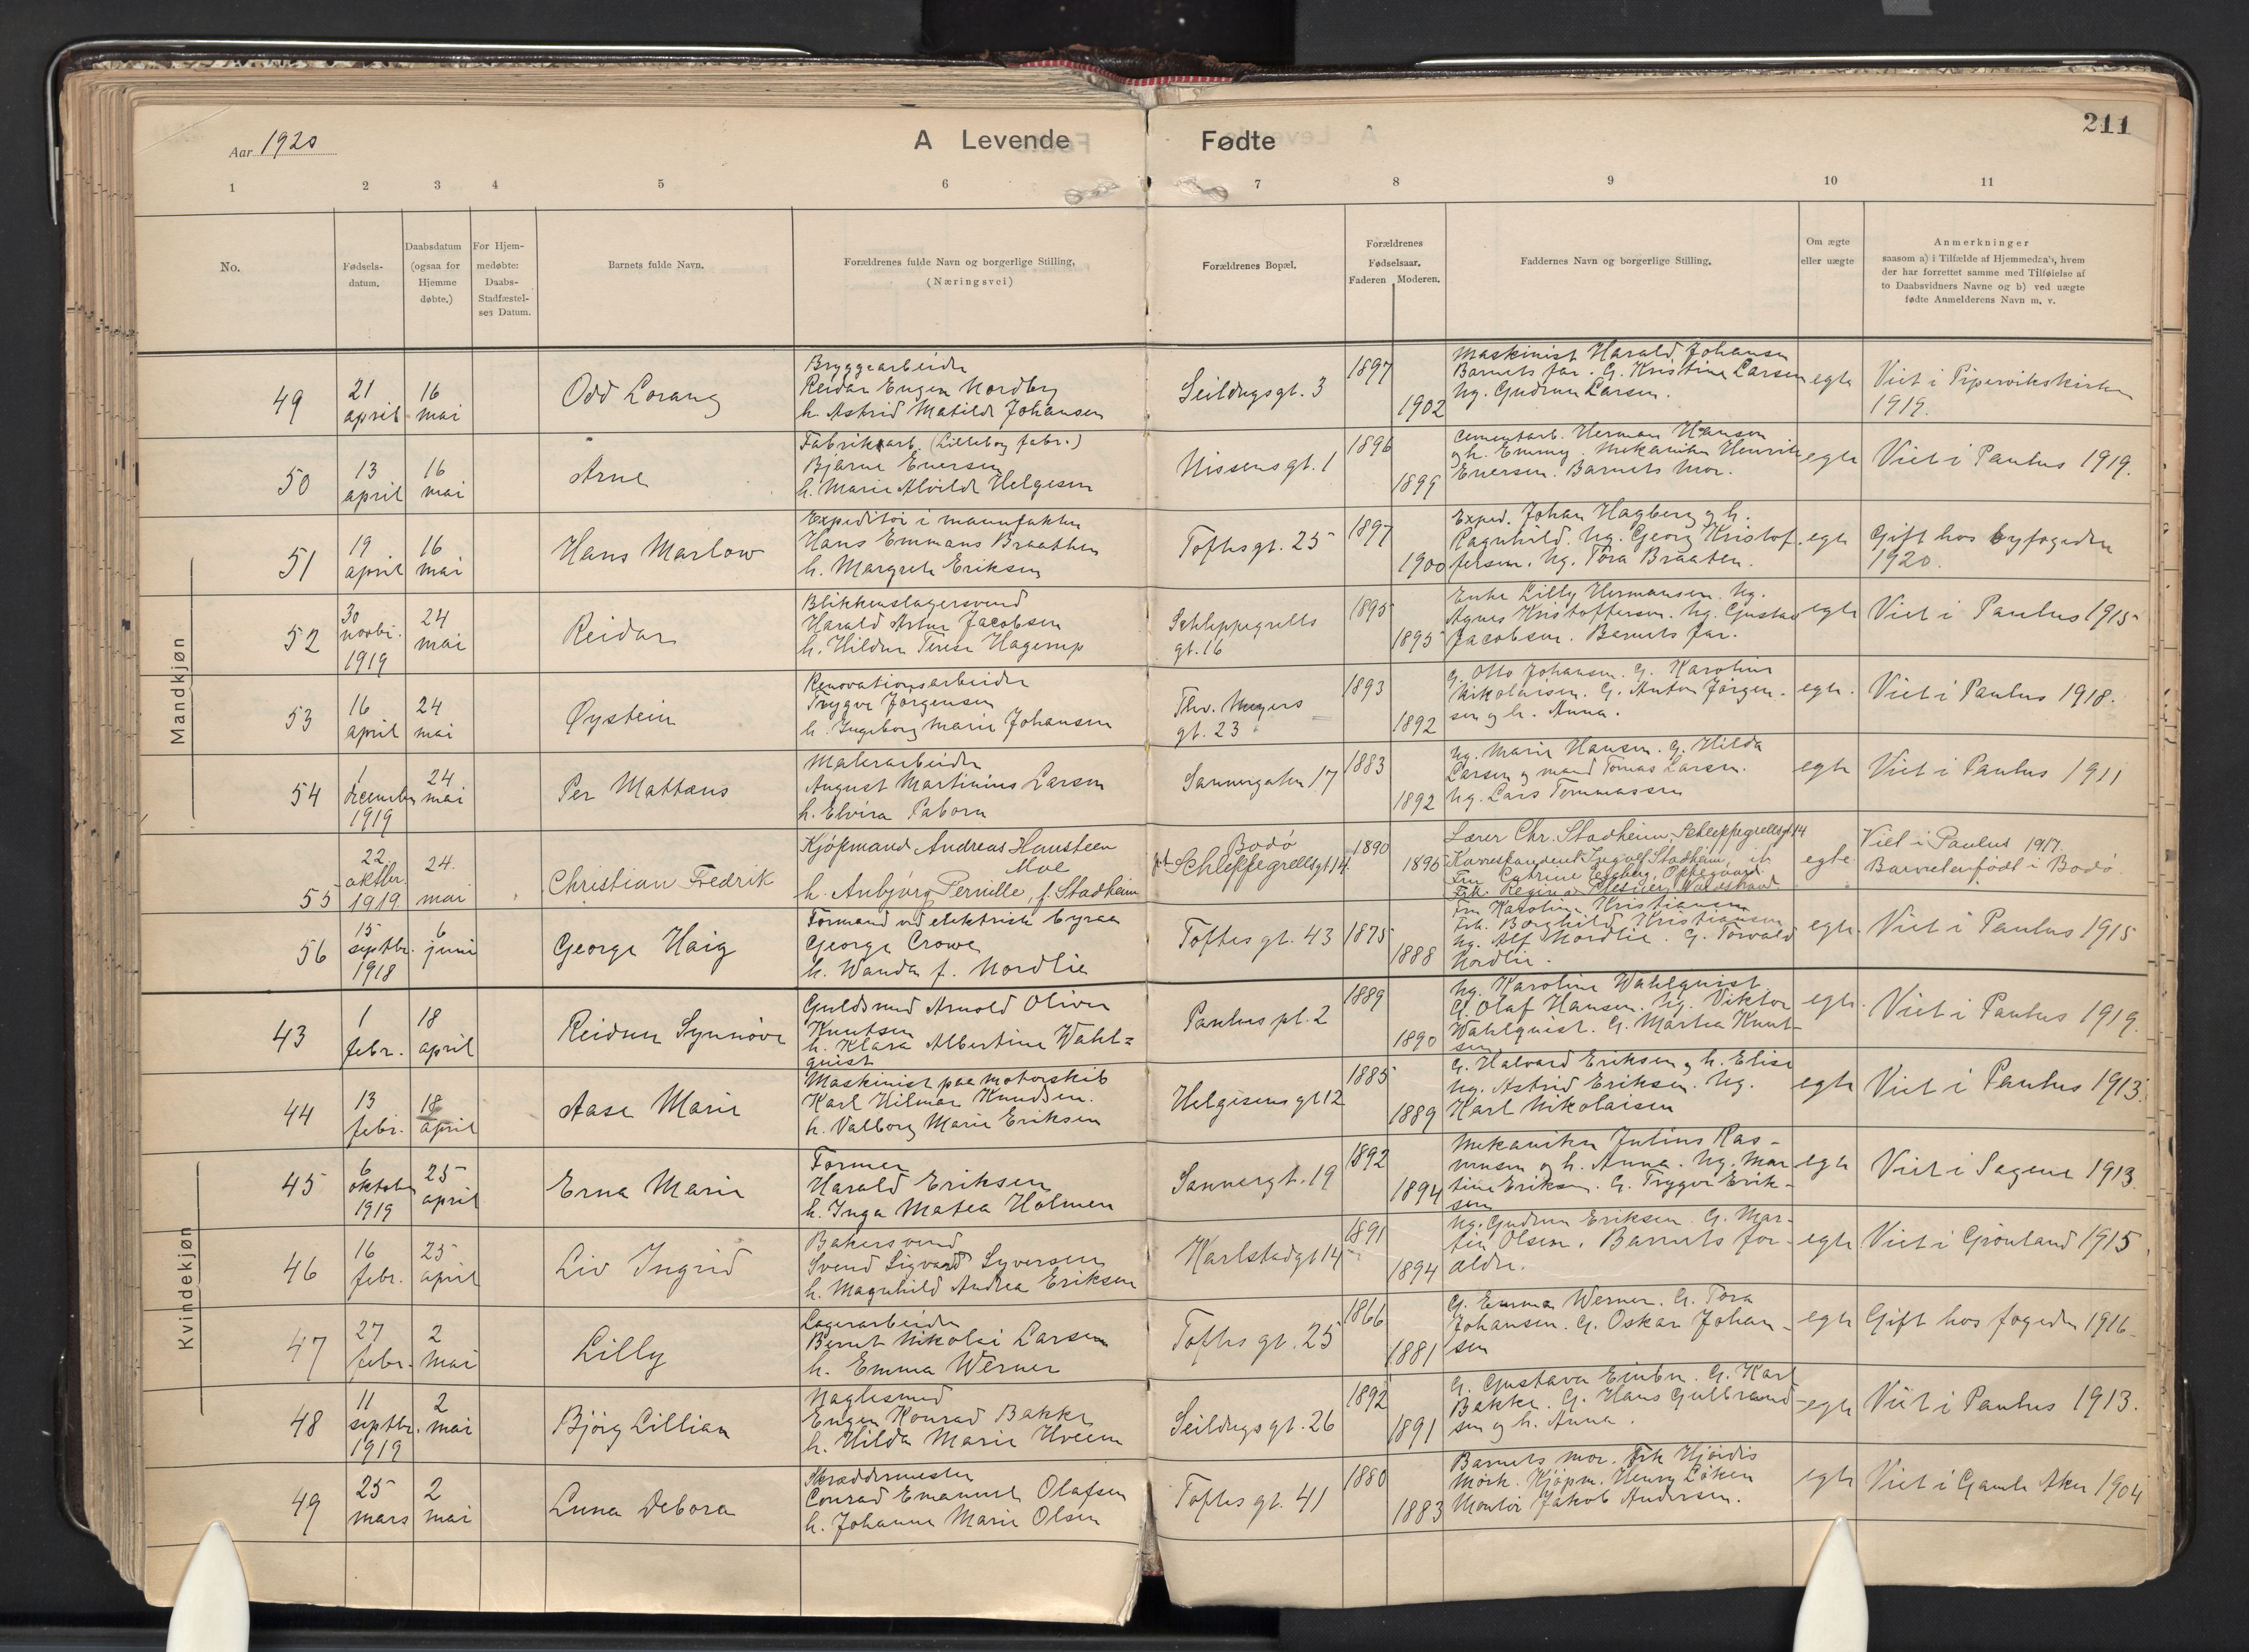 211
Aar 1920
A Levende Fødte
1 2 3 4 5 6 7 8 9 10 11
No.
Fødsels-
datum.
Daabsdatum
(ogsaa for
Hjemme
døbte.)
For Hjem-
medøbte:
Daabs-
Stadfæstel-
ses Datum.
Barnets fulde Navn.
Forældrenes fulde Navn og borgerlige Stilling,
(Næringsvei)
Forældrenes Bopæl.
Forældrenes
Fødselsaar.
Faderen Moderen.
Faddernes Navn og borgerlige Stilling.
Om ægte
eller uægte
Anmerkninger
saasom a) i Tilfælde af Hjemmedaab, hvem
der har forrettet samme med Tilføielse af
to Daabsvidners Navne og b) ved uægte
fødte Anmelderens Navn m. v.
Mandkjøn
49
21
april
16
mai
Odd Lorang
Bryggearbeider
Reidar Eugen Nordby
h. Astrid Matilde Johansen
Seildugsgt. 3
1897
1902
Maskinist Harald Johansen
Barnets far. G. Kristine Larsen
Ug. Gudrun Larsen.
egte
Viet i Pipervikskirken
1919.
50
13
april
16
mai
Arne
Fabrikkarb. (Lilleborg fabr.)
Bjarne Eversen
h. Marie Alvilde Helgesen
Nissensgt. 1
1896
1899
Cementarb. Herman Hansen
og h. Emmy. Mekaniker Henrik
Eversen. Barnets mor.
egte
Viet i Paulus 1919.
51
19
april
16
mai
Hans Marlow
Expeditør i manufaktur
Hans Emmans Braathen
h. Margrete Eriksen
Toftesgt. 25
1897
1900
Exped. Johan Hagberg og h.
Ragnhild. Ug. Georg Kristof-
fersen. Ug. Tora Braaten.
egte
Gift hos byfogden
1920.
52
30
novbr.
1919
24
mai
Reidar
Blikkenslagersvend
Harald Artur Jacobsen
h. Hildur Terese Hagerup
Schleppegrells
gt. 16
1895
1895
Enke Lilly Hermansen. Ug.
Agnes Kristoffersen. Ug. Gustav
Jacobsen. Barnets far.
egte
Viet i Paulus 1915
53
16
april
24
mai
Øystein
Renovationsarbeider
Trygve Jørgensen
h. Ingeborg Marie Johansen
Thv. Meyers
gt. 23
1893
1892
G. Otto Johansen. G. Karoline
Nikolaisen. G. Anton Jørgen-
sen og h. Anna.
egte.
Viet i Paulus 1918.
54
1
december
1919
24
mai
Per Mattæus
Malerarbeider
August Martinius Larsen
h. Elvira Paborn
Sannergaten 17
1883
1892
Ug. Marie Hansen. G. Hilda
Larsen og mand Tomas Larsen.
Ug. Lars Tommassen
egte
Viet i Paulus 1911
55
22.
oktbr.
1919.
24.
mai
Christian Fredrik
Kjøpmand Andreas Hansteen
Moe
h. Anbjørg Pernille, f. Stadheim
Bodø
pt Schleppegrellsgt 14.
1890
1895
Lærer Chr. Stadheim, Schleppegrellsgt 14
Korrespondent Ingolf Stadheim,
Fru Catrine Egeberg, Oppegaard
Frk. Regina
egte
Viet i Paulus 1917.
Barnet er født i Bodø
56
15
septbr.
1918
6
juni
George Haig
Formand ved elektrisk byraa
George Crowe
h. Wanda f. Nordlie
Toftesgt. 43
1875
1888
Fru Karoline Kristiansen
Frk. Borghild Kristiansen
Ug. Alf Nordlie. G. Torvald
Nordlie.
egte.
Viet i Paulus 1915
Kvindekjøn
43
1
febr.
18
april
Reidun Synnøve
Guldsmed Arnold Oliver
Knutsen
h. Klara Albertine Wahl=
quist
Paulus pl. 2
1889
1890
Ug. Karoline Wahlquist
G. Olaf Hansen. Ug. Viktor
Wahlquist. G. Martea Knut-
sen
egte.
Viet i Paulus 1919.
44
13
febr.
18
april
Aase Marie
Maskinist paa motorskib
Karl Hilmar Knudsen.
h. Valborg Marie Eriksen
Helgesensgt 12
1885
1889
G. Halvard Eriksen og h. Elise
Ug. Astrid Eriksen. Ug.
Karl Nikolaisen
egte
Viet i Paulus 1913.
45
6
oktober
1919
25
april
Erna Marie
Former
Harald Eriksen
h. Inga Matea Holmen
Sannergt. 19
1892
1894
Mekaniker Julius Ras-
mussen og h. Anna. Ug. Mar
tine Eriksen. G. Trygve Erik-
sen
egte
Viet i Sagene 1913.
46
16
febr.
25
april
Liv Ingrid
Bakersvend
Svend Sigvard Syversen
h. Magnhild Andrea Eriksen
Karlstadgt 14
1891
1894
Ug. Gudrun Eriksen. G. Mar-
tin Olsen. Barnets for-
ældre.
egte
Viet i Grønland 1915
47
27
febr.
2
mai
Lilly
Lagerarbeider
Bernt Nikolai Larsen
h. Emma Werner
Toftes gt. 25
1866
1881
G. Emma Werner. G. Tora
Johansen. G. Oskar Johan-
sen
egte
Gift hos fogden 1916
48
11
septbr.
1919
2
mai
Bjørg Lillian
Naglesmed
Eugen Konrad Bakke
h. Hilda Marie Hveem
Seildugsgt. 26
1892
1891
G. Gustava G. Karl
Bakke. G. Hans Gulbrand-
sen og h. Anna.
egte
Viet i Paulus 1913.
49
25
mars
2
mai
Luna Debora
Skræddermester
Conrad Emanuel Olafsen
h. Johanne Marie Olsen
Toftes gt. 41
1880
1883
Barnets mor. Frk Hjørdis
Mørk. Kjøpm. Henry Løken
Montør Jakob Andersen.
egte
Viet i Gamle Aker 1904